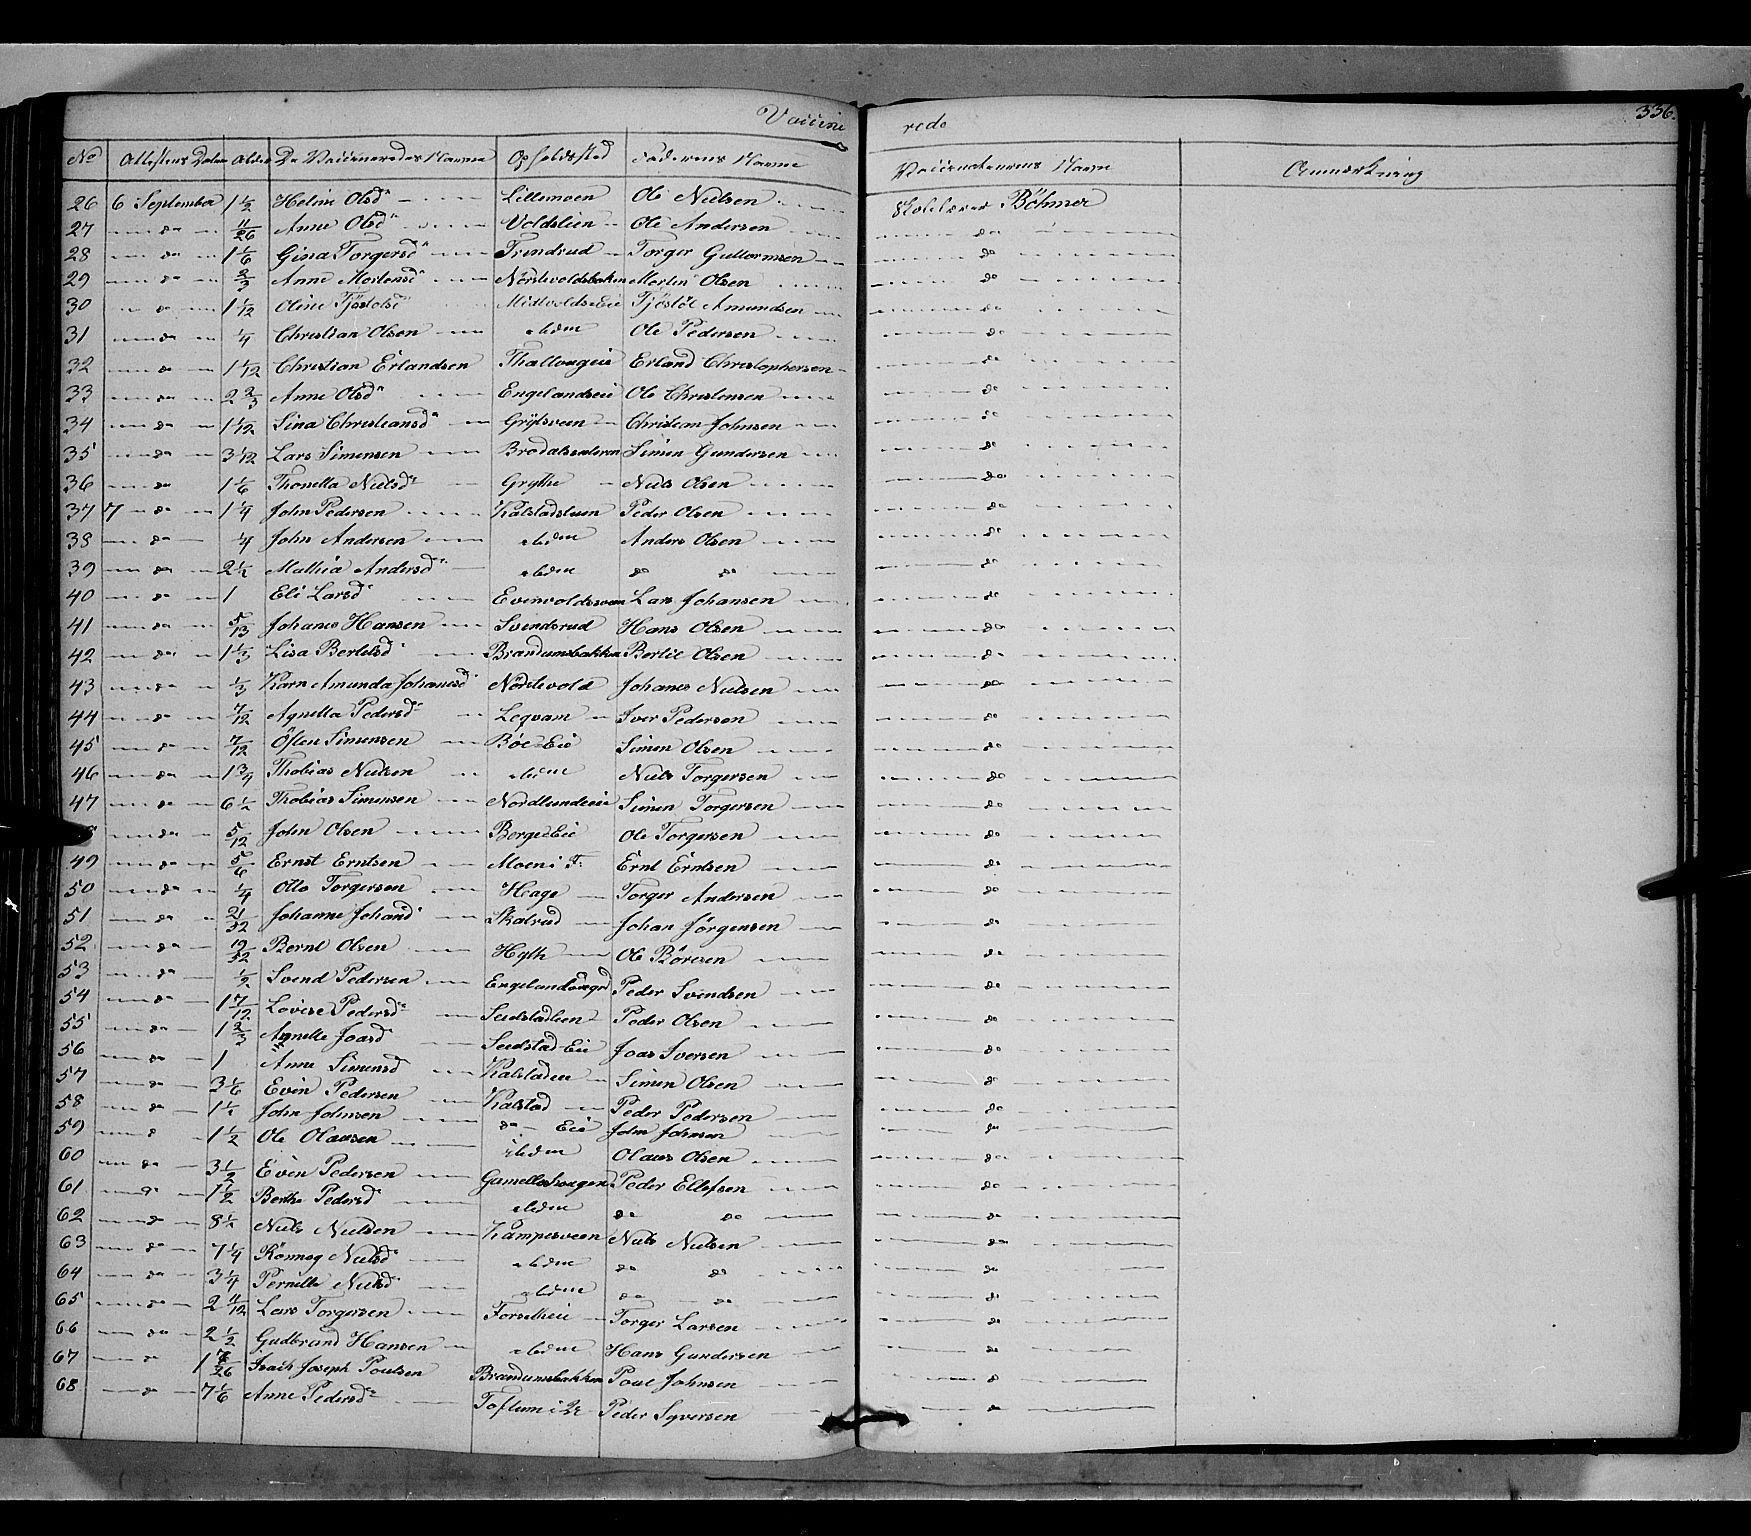 Vaccine rede 336.
No Attestens Datum Alder De Vaccineredes Navne Opholdssted Faderens Navne Vaccinateurens Navn Anmærkning
26 6 September 1 1/2 Helene Olsd Lillemoen Ole Nielsen Skolelærer Böhmer
27 do 11/26 Anne Olsd Voldslien Ole Andersen do
28 do 1 1/6 Gina Torgersd Trindrud Torger Guttormsen do
29 do 2/3 Anne Mortensd Nørstevoldsbaken Morten Olsen do
30 do 1 1/12 Oline Tjøstolsd Midtvolds Eie Tjöstöl Amundsen do
31 do 1/4 Christian Olsen ibidem Ole Pedersen do
32 do 1 1/12 Christian Erlandsen Thallougeie Erland Christophersen do
33 do 2 2/3 Anne Olsd Engelandseie Ole Christensen do
34 do 1 1/12 Sina Christiansd Grÿtsveen Christian Johnsen do
35 do 3 1/12 Lars Simensen Brodalssæteren Simen Gundersen do
36 do 1 1/6 Thonetta Nielsd Grythe Niels Olsen do
37 7 do 1 1/4 John Pedersen Kalstadstuen Peder Olsen do
38 do 1/4 John Andersen ibidem Anders Olsen do
39 do 2 1/2 Mathia Andersd ibidem do do do
40 do 1 Eli Larsd Evenvoldsveen Lars Johansen do
41 do 5/13 Johanes Hansen Svendsrud Hans Olsen do
42 do 1 1/3 Lisa Bertelsd Brandumsbakken Bertil Olsen do
43 do 1/3 Karn Amunda Johanesd Nørstevold Johanes Nielsen do
44 do 7/12 Agnetta Pedersd Leqvam Iver Pedersen do
45 do 7/12 Östen Simensen Böe Eie Simen Olsen do
46 do 1 3/4 Thobias Nielsen ibidem Niels Torgersen do
47 do 6 1/2 Thobias Simensen Nordlundseie Simen Torgersen do
do 5/12 John Olsen Berge Eie Ole Torgersen do
49 do 5/6 Ernst Erntsen Moen i F: Ernt Erntsen do
50 do 1/4 Otto Torgersen Hage Torger Andersen do
51 do 21/52 Johanne Johansd Skalrud Johan Jørgensen do
52 do 19/52 Bernt Olsen Hyth Ole Böresen do
53 do 1/2 Svend Pedersen Engelandsvegnd Peder Svendsen do
54 do 1 7/12 Lovise Pedersd Seelstadlien Peder Olsen do
55 do 1 2/3 Agnette Joasd Seelstad Eie Joas Iversen do
56 do 1 Anne Simensd Kalstadeie Simen Olsen do
57 do 3 1/6 Even Pedersen Kalstad Peder Pedersen do
58 do 1 1/2 John Johnsen do Eie John Johnsen do
59 do 1 1/2 Ole Olausen ibidem Olaus Olsen do
60 do 3 1/2 Even Pedersen Gamelshougen Peder Ellefsen do
61 do 1 1/2 Berthe Pedersd ibidem do do do
62 do 8 1/2 Niels Nielsen Kampesveen Niels Nielsen do
63 do 7 1/4 Rönnog Nielsd ibidem do do do
64 do 3 1/4 Pernille Nielsd ibidem do do do
65 do 2 11/12 Lars Torgersen Forsetheie Torger Larsen do
66 do 2 1/2 Gudbrand Hansen ibidem Hans Gundersen do
67 do 1 7/26 Isach Joseph Poulsen Brandumsbakken Poul Johnsen do
68 do 7 1/6 Anne Pedersd Toftum i Peder Syversen do